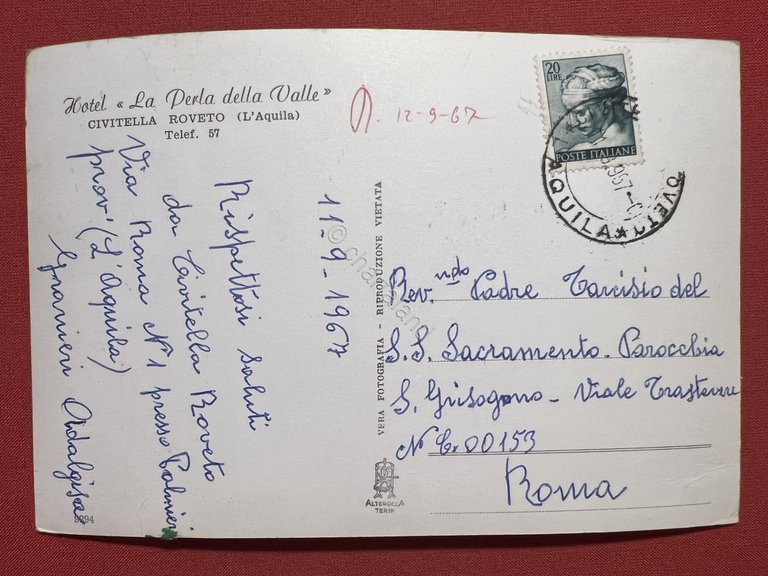 Hotel « La Perla della Valle »
CIVITELLA ROVETO (L'Aquila)
Telef. 57
12-9-67
20
LIRE
POSTE ITALIANE
AQUILA ★
11-9-1967
Rispettosi saluti
da Civitella Roveto
Via Roma N°1 presso Palmieri
prov (L'Aquila)
Granieri Adalgisa
9294
VERA FOTOGRAFIA - RIPRODUZIONE VIETATA
Rev.ndo Padre Tarcisio del
S.S. Sacramento. Parocchia
S. Grisogono - Viale Trastevere
N C. 00153
Roma
ALTEROCCA
TERNI